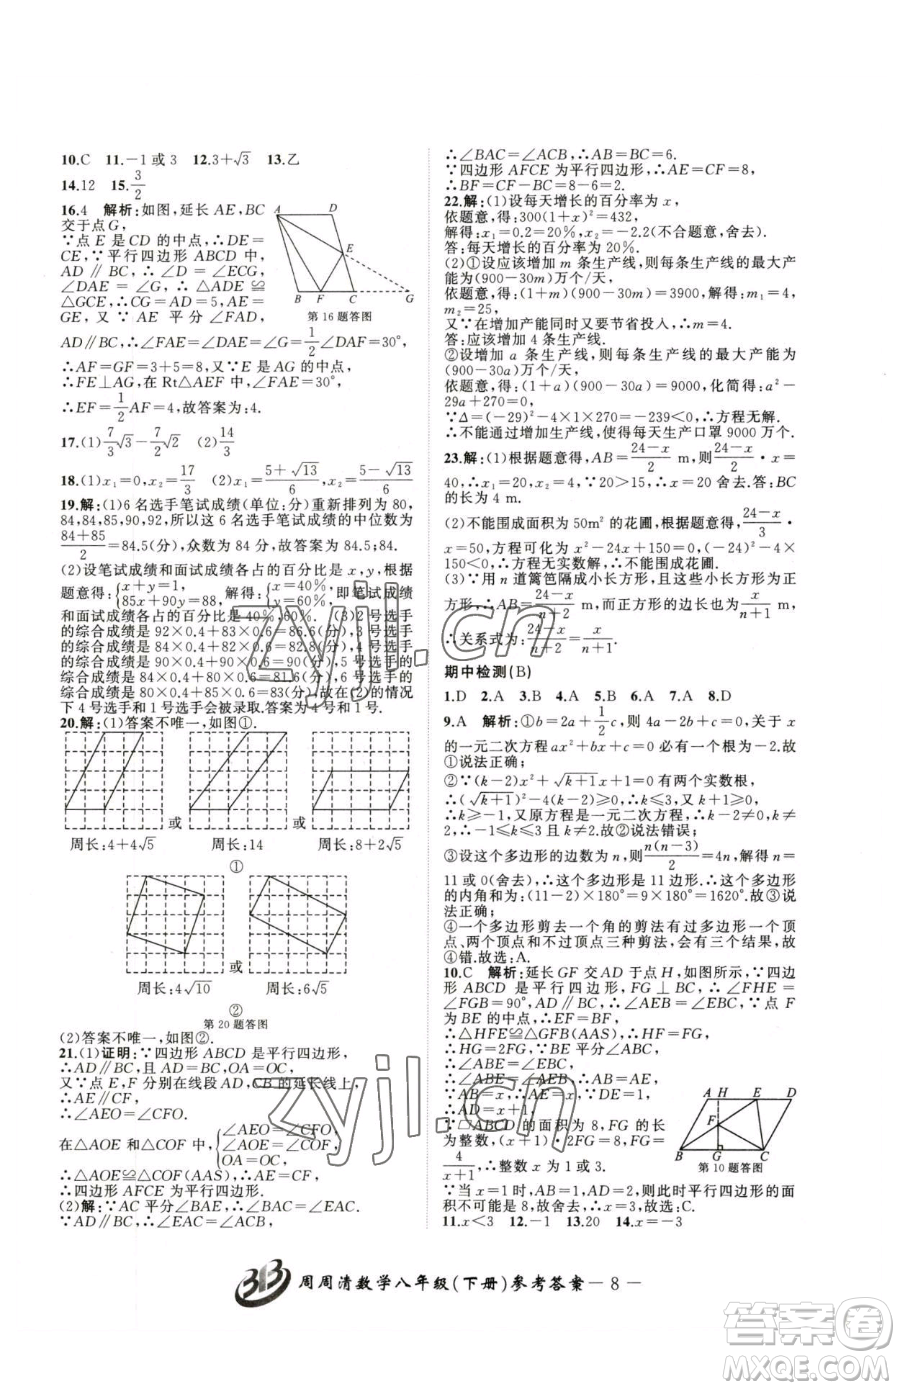 10.C 11.－1或3 12.3＋√3 13.乙
14.12 15.3/2
16.4 解析:如图,延长AE,BC
交于点G,
∵点E是CD的中点,∴DE＝
CE,∵平行四边形ABCD中,
AD∥BC,∴∠D＝∠ECG,
∠DAE＝∠G,∴△ADE≌
△GCE,∴CG＝AD＝5,AE＝
GE,又∵AE平分∠FAD,
AD∥BC,∴∠FAE＝∠DAE＝∠G＝1/2∠DAF＝30°,
∴AF＝GF＝3＋5＝8,又∵E是AG的中点,
∴FE⊥AG,在Rt△AEF中,∠FAE＝30°,
∴EF＝1/2AF＝4,故答案为:4.
A D E B F C G
第16题答图
17.(1)7/3√3－7/2√2 (2)14/3
18.(1)x₁＝0,x₂＝17/3 (2)x₁＝(5＋√13)/6,x₂＝(5－√13)/6
19.解:(1)6名选手笔试成绩(单位:分)重新排列为80,
84,84,85,90,92,所以这6名选手笔试成绩的中位数为
(84＋85)/2＝84.5(分),众数为84分,故答案为:84.5;84.
(2)设笔试成绩和面试成绩各占的百分比是x,y,根据
题意得:{x＋y＝1, 85x＋90y＝88, 解得:{x＝40%, y＝60%, 即笔试成绩
和面试成绩各占的百分比是40%,60%. (3)2号选手
的综合成绩是92×0.4＋83×0.6＝86.6(分),3号选手
的综合成绩是84×0.4＋
的综合成绩是90×0.4＋
的综合成绩是84×0.4＋80×0.6＝81.6(分),6号选手
的综合成绩是80×0.4＋85×0.6＝83(分),在2的情况
下4号选手和1号选手会被录取.答案为4号和1号.
20.解:(1)答案不唯一,如图①.
或 或
周长:4＋4√5 周长:14 周长:8＋2√5
①
或
周长:4√10 周长:6√5
②
第20题答图
(2)答案不唯一,如图②.
21.(1)证明:∵四边形ABCD是平行四边形,
∴AD∥BC,且AD＝BC,OA＝OC,
又∵点E,F分别在线段AD,CB的延长线上,
∴AE∥CF,
∴∠AEO＝∠CFO.
在△AOE和△COF中,{∠AEO＝∠CFO, ∠AOE＝∠COF, OA＝OC,
∴△AOE≌△COF(AAS),∴AE＝CF,
∴四边形AFCE为平行四边形.
(2)解:∵AC平分∠BAE,∴∠BAC＝∠EAC.
∵AD∥BC,∴∠ACB＝∠EAC,
∴∠BAC＝∠ACB,∴AB＝BC＝6.
∵四边形AFCE为平行四边形,∴AE＝CF＝8,
∴BF＝CF－BC＝8－6＝2.
22.解:(1)设每天增长的百分率为x,
依题意,得:300(1＋x)²＝432,
解得:x₁＝0.2＝20%,x₂＝－2.2(不合题意,舍去).
答:每天增长的百分率为20%.
(2)①设应该增加m条生产线,则每条生产线的最大产
能为(900－30m)万个/天,
依题意,得:(1＋m)(900－30m)＝3900,解得:m₁＝4,
m₂＝25.
又∵在增加产能同时又要节省投入,∴m＝4.
答:应该增加4条生产线.
②设增加a条生产线,则每条生产线的最大产能为
(900－30a)万个/天,
依题意,得:(1＋a)(900－30a)＝9000,化简得:a²－
29a＋270＝0,
∵Δ＝(－29)²－4×1×270＝－239<0,∴方程无解.
∴不能通过增加生产线,使得每天生产口罩9000万个.
23.解:(1)根据题意,AB＝(24－x)/3 m,则(24－x)/3·x＝
40,∴x₁＝20,x₂＝4,∵20>15,∴x＝20舍去.答:BC
的长为4 m.
(2)不能围成面积为50m²的花圃,根据题意得,(24－x)/3·
x＝50,方程可化为x²－24x＋150＝0,∵Δ＝(－24)²－4×
1×150<0,∴方程无实数解,∴不能围成花圃.
(3)∵用n道篱笆隔成小长方形,且这些小长方形为正
方形,∴AB＝(24－x)/(n＋2),而正方形的边长也为x/(n＋1) m,
∴关系式为:(24－x)/(n＋2)＝x/(n＋1).
期中检测(B)
1.D 2.A 3.B 4.A 5.B 6.A 7.A 8.D
9.A 解析:①b＝2a＋1/2c,则4a－2b＋c＝0,关于x
的一元二次方程ax²＋bx＋c＝0必有一个根为－2.故
①说法正确;
②∵(k－2)x²＋√(k＋1)x＋1＝0有两个实数根,
∴(√(k＋1))²－4(k－2)≥0,∴k≤3,又∵k＋1≥0,
∴k≥－1,又∵原方程是一元二次方程,∴k≠2,
∴－1≤k≤3,且k≠2,故②说法错误;
③设这个多边形的边数为n,则n(n－3)/2＝4n,解得n＝
11或0(舍去),∴这个多边形是11边形.∴这个多边形
的内角和为:(11－2)×180°＝9×180°＝1620°.故③说
法正确;
④一个多边形剪去一个角的剪法有过多边形一个顶
点、两个顶点和不过顶点三种剪法,会有三个结果,故
④错.故选:A.
10.C 解析:延长GF交AD于点H,如图所示,∵四边
形ABCD是平行四边形,FG⊥BC,∴∠FHE＝
∠FGB＝90°,AD∥BC,∴∠AEB＝∠EBC,∵点F
为BE中点,∴EF＝BF,
∴△HFE≌△GFB(AAS),∴HF＝FG,
∴HG＝2FG,∵BE平分∠ABC,
∴∠ABE＝∠EBC,
∴∠ABE＝∠AEB,
∴AB＝AE,∵AB＝x,DE＝1,
∴AD＝x＋1,
∵▱ABCD的面积为8,FG的长
为整数,(x＋1)·2FG＝8,FG＝
4/(x＋1),∴整数x为1或3,
∵当x＝1时,AD＝2,则此时平行四边形的面
积不可能为8,故舍去,∴x＝3,故选:C.
A H E D F B G C
第10题答图
11.x<3 12.－1 13.20 14.x＝－3
周周清数学八年级(下册)参考答案—8—
zyjl.cn
zyjl.cn
答案圈
MXQE.COM